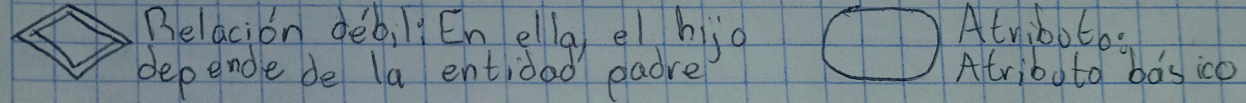 Relación débil: En ella, el hijo
depende de la entidad padre
Atributo:
Atributo básico